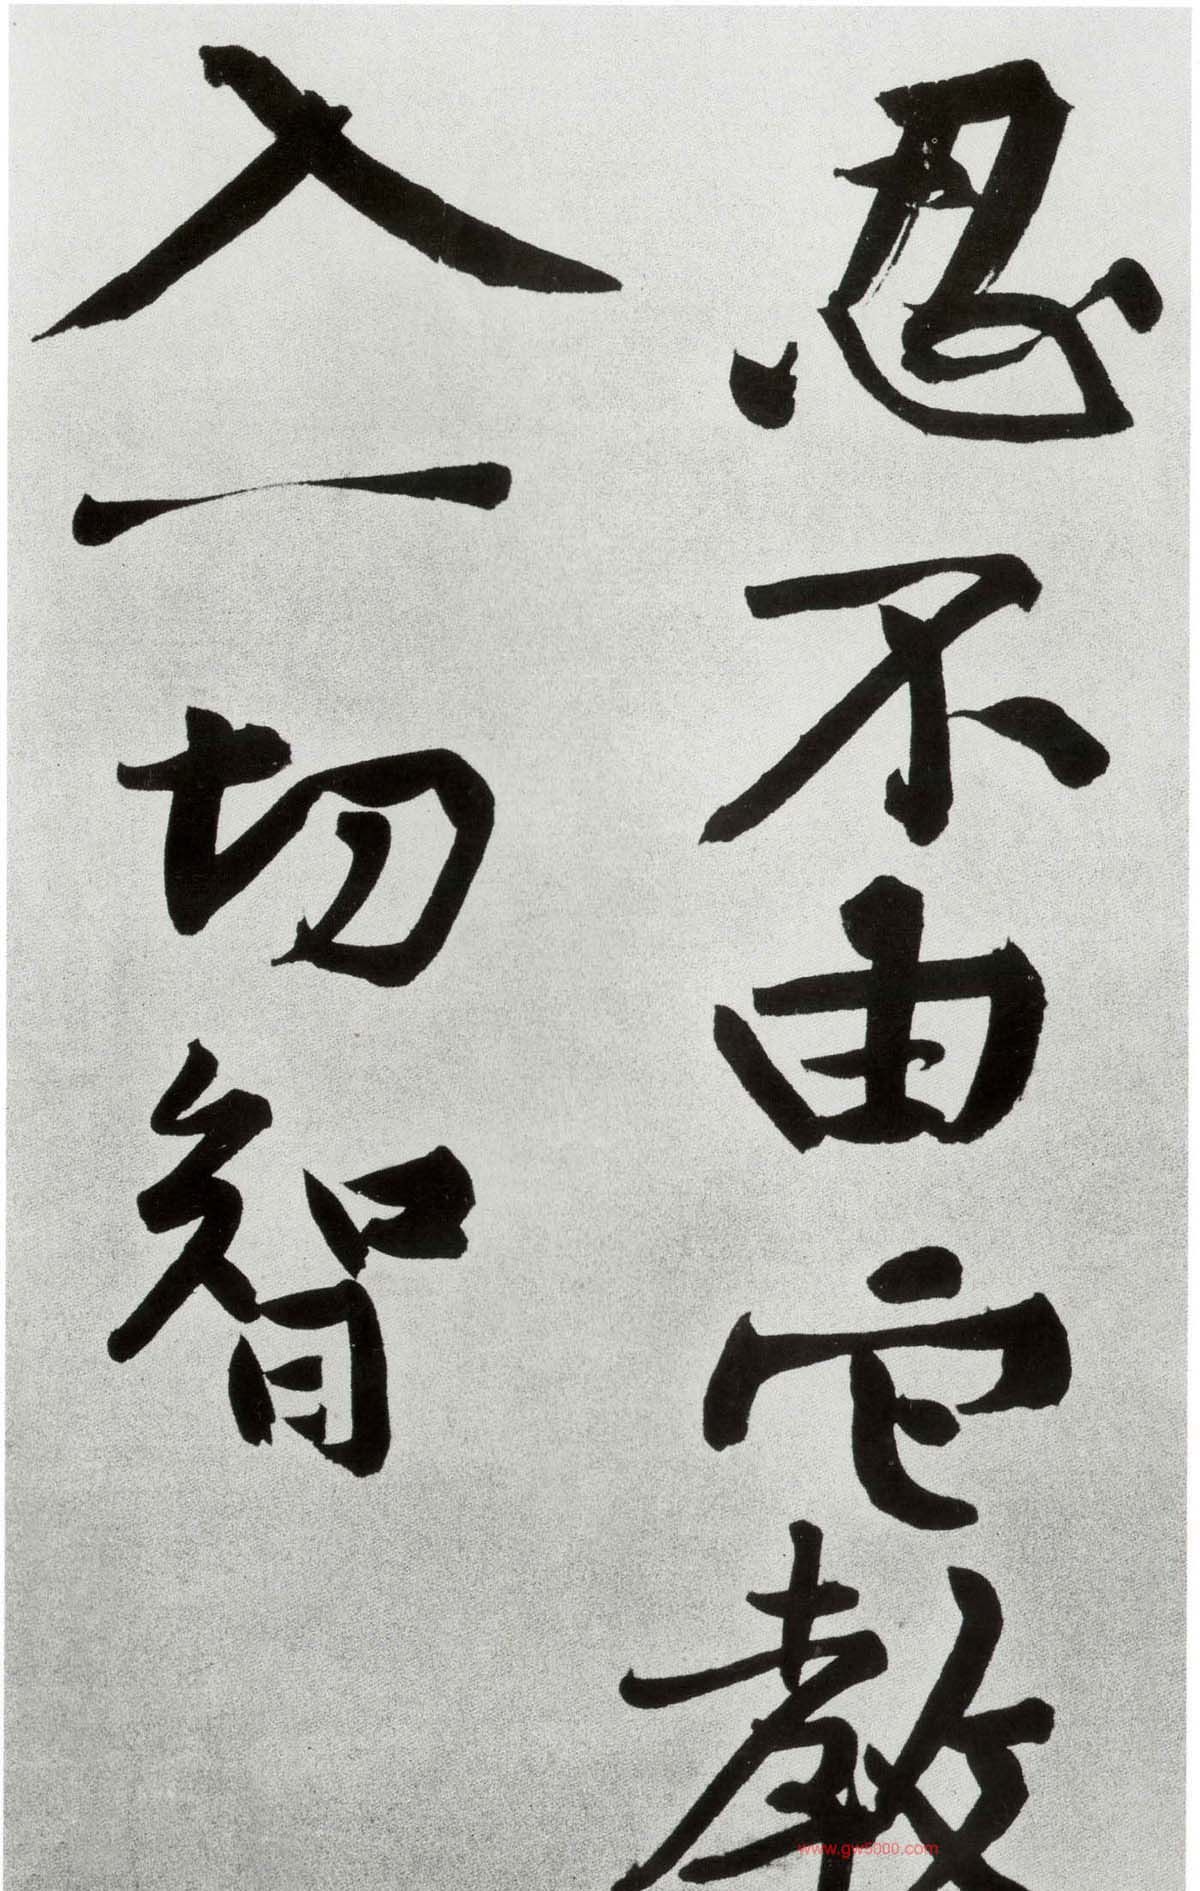 忍不由它教
入一切智
www.gw5000.com